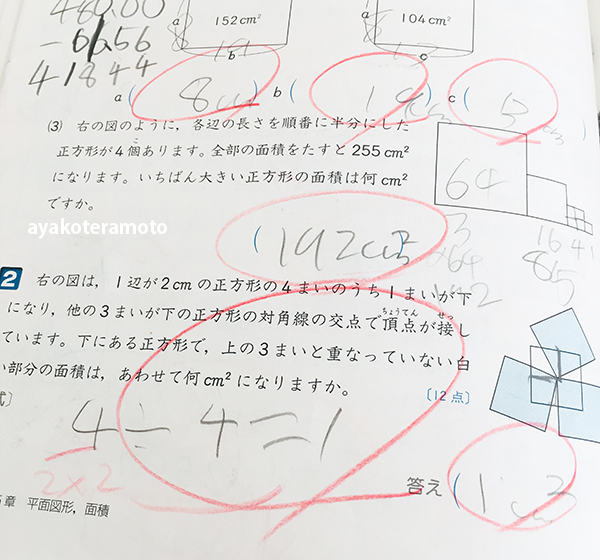 480.00
152cm²
104cm²
a
a
b
c
41844
a ( 8cm ) b ( 19cm ) c ( 5cm )
(3) 右の図のように，各辺の長さを順番に半分にした
正方形が4個あります。全部の面積をたすと255cm²
になります。いちばん大きい正方形の面積は何cm²
ですか。
64
16 4 1
85
ayakoteramoto
( 192cm²
3
×64
2 右の図は，1辺が2cmの正方形の4まいのうち1まいが下
になり，他の3まいが下の正方形の対角線の交点で頂点が接し
ちょうてん せっ
ています。下にある正方形で，上の3まいと重なっていない白
い部分の面積は，あわせて何cm²になりますか。
〔12点〕
式〕
4÷4=1
2×2
答え ( 1cm²
章 平面図形，面積